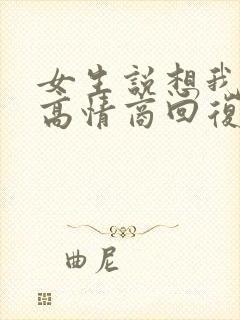 女生説想我
高情商回復
曲尼